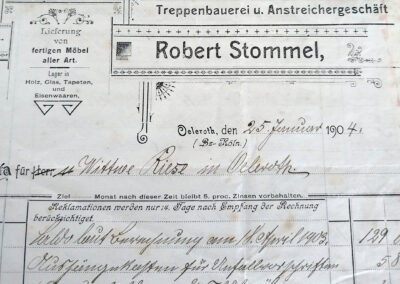 Treppenbauerei u. Anstreichergeschäft
Robert Stommel,
Lieferung
von
fertigen Möbel
aller Art.
Lager in
Holz, Glas, Tapeten,
und
Eisenwaaren.
Oeleroth, den 25 Januar 1904.
(Bz-Köln.)
für Herr u Wittwe Riese in Oeleroth
Ziel Monat nach dieser Zeit bleibt 5. proc. Zinsen vorbehalten.
Reklamationen werden nur 14. Tage nach Empfang der Rechnung
berücksichtiget.
Saldo laut Berechnung am 14. April 1903. 129
Aushängekasten für Unfallvorschriften 5